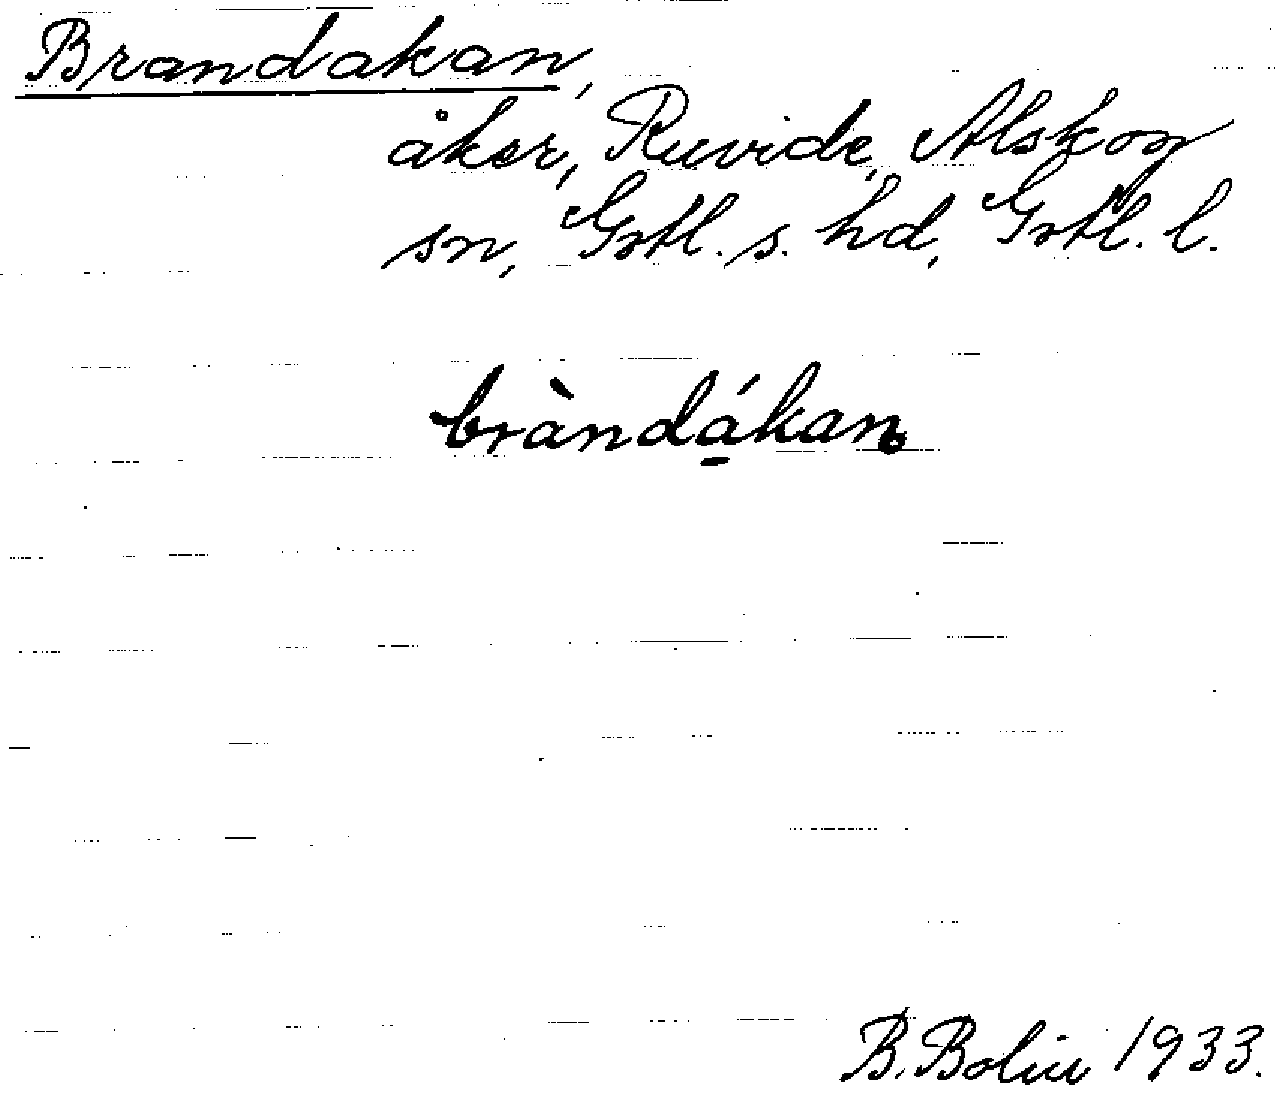 Brandakan,
åker, Ruvide, Alskog
sn, Gotl. s. hd, Gotl. l.
bràndá̱kan
B. Bolin 1933.